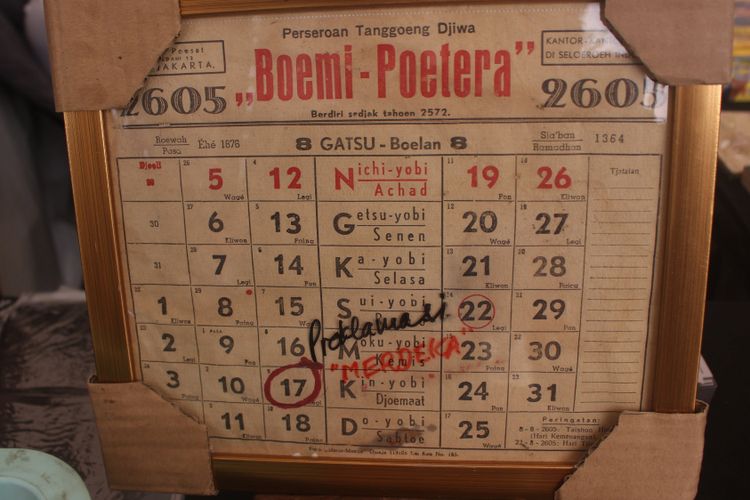 Perseroan Tanggoeng Djiwa
Poesat
KARTA.
"Boemi-Poetera"
KANTOR-
DI SELOEROEH IN
2605
2605
Berdiri sedjak tahoen 2572.
Roewah
Pasa
Éhé 1876
8 GATSU - Boelan 8
Sja'ban
Ramadhan
1364
Djoeli 5 Wagé 12 Legi Nichi-yobi Achad 19 Pon 26 Kliwon Tjatatan
30 6 Kliwon 13 Paing Getsu-yobi Senen 20 Wagé 27 Legi
31 7 Legi 14 Pon Ka-yobi Selasa 21 Kliwon 28 Paing
1 Kliwon 8 Paing 15 Wagé Sui-yobi 22 Legi 29 Pon
2 Legi 9 Pon 16 Moku-yobi Kemis 23 Paing 30 Wagé
3 Paing 10 Wagé 17 Kin-yobi Djoemaat 24 Pon 31 Kliwon
11 Kliwon 18 Paing Do-yobi Sabtoe 25 Wagé
Proklamasi
"MERDEKA"
Peringatan:
8-8-2605: Taishoo
(Hari Kemenangan